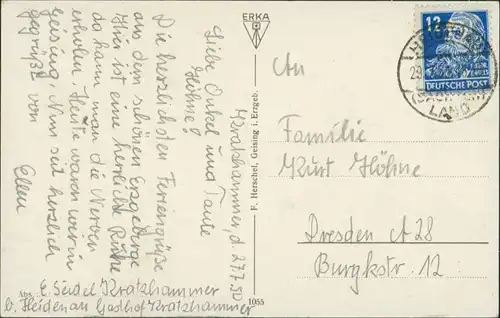 Kratzhammer, d. 27.7.50
Liebe Onkel und Tante
Höhne!
Die herzlichsten Feriengrüße
aus dem schönen Erzgebirge
Hier ist eine herrliche Ruhe
da kann man die Nerven
erholen. Heute waren wir in
Geising. Nun seid herzlich
gegrüßt von
Ellen
Abs. E. Seidel Kratzhammer
b. Heidenau Gasthof Kratzhammer
ERKA
F. Herschel, Geising i. Erzgeb.
1055
12
DEUTSCHE POST
An
Familie
Kurt Höhne
Dresden A 28
Burgkstr. 12